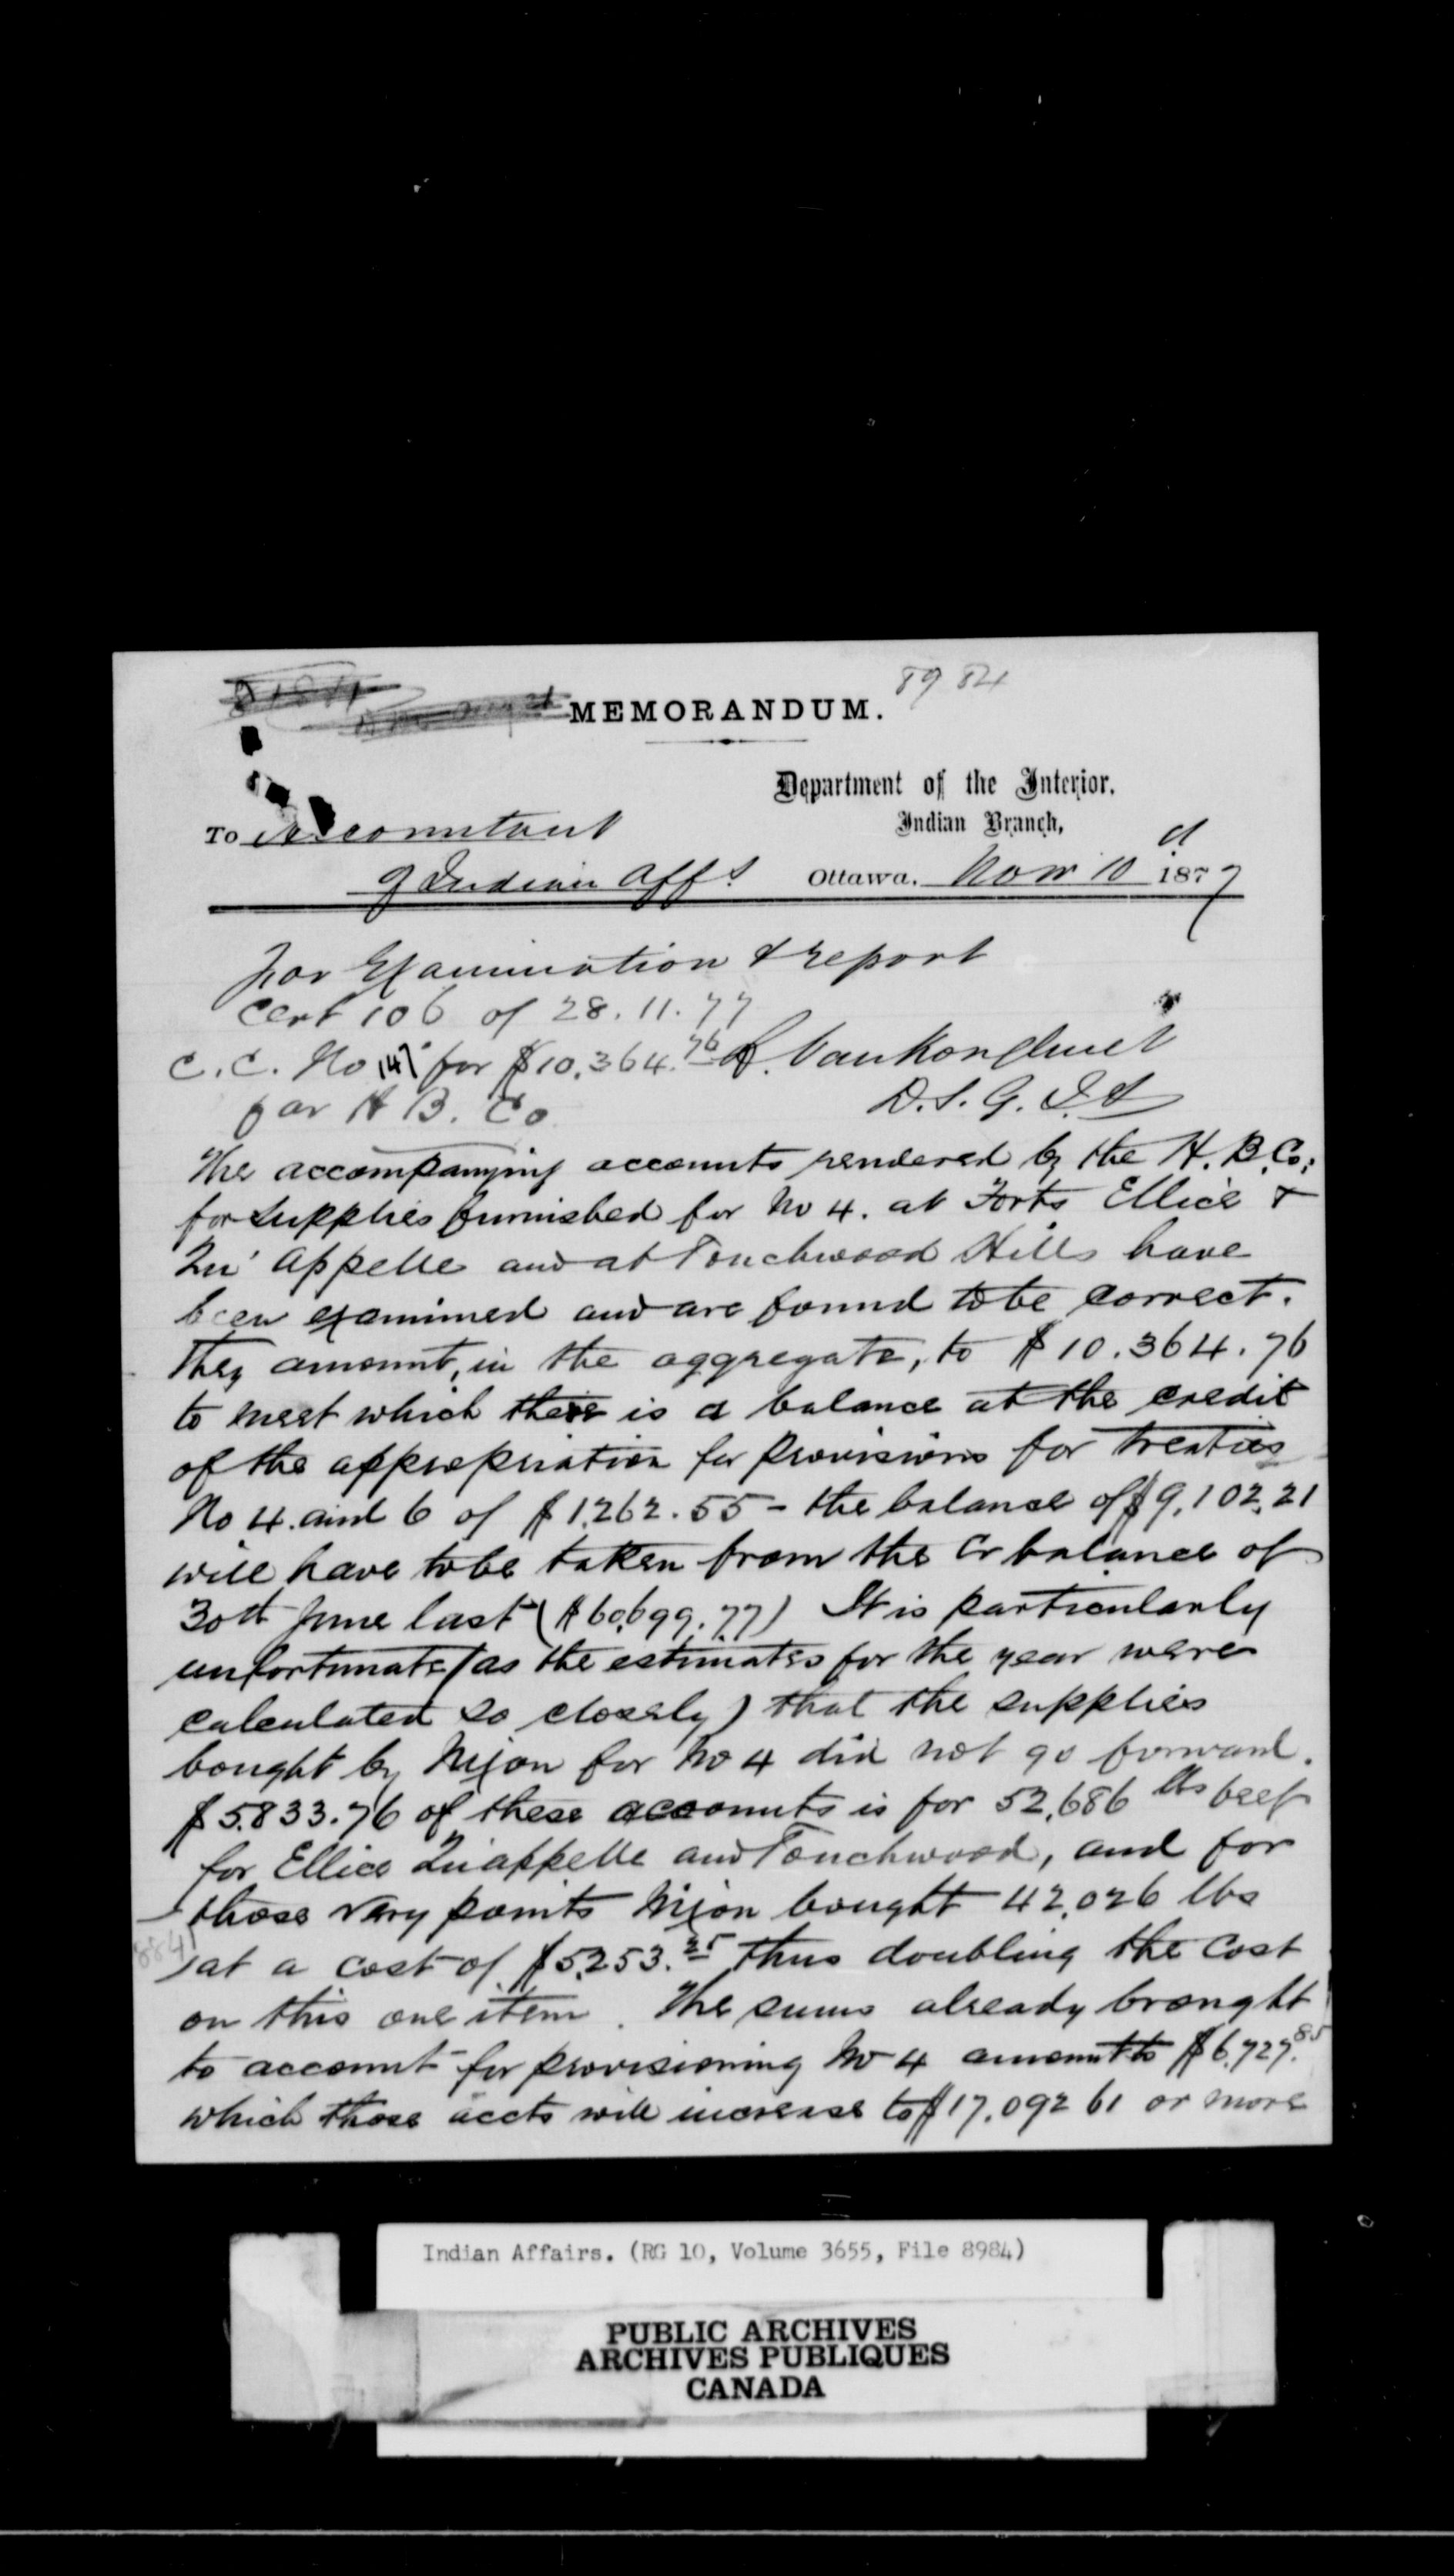 8984
MEMORANDUM.
Department of the Interior.
Indian Branch,
To Accountant
of Indian Affs.
Ottawa, Nov 10 1877
For Examination & report
Cert 106 of 28.11.77
C.C. No 147 for $10,364.76
L. Vankoughnet
for H B. Co
D.S.G.I.A
The accompanying accounts rendered by the H.B.Co:
for supplies furnished for No 4. at Forts Ellice &
Qu'Appelle and at Touchwood Hills have
been examined and are found to be correct.
They amount, in the aggregate, to $10.364.76
to meet which there is a balance at the credit
of the appropriation for provisions for treaties
No 4. and 6 of $1,262.55 - the balance of $9,102.21
will have to be taken from the Cr balance of
30th June last ($60,699.77) It is particularly
unfortunate (as the estimates for the year were
calculated so closely) that the supplies
bought by Nixon for No 4 did not go forward.
$5.833.76 of these accounts is for 52,686 lbs beef
for Ellice Qu'appelle and Touchwood, and for
those very points Nixon bought 42,026 lbs
8841
at a cost of $5,253.25 thus doubling the cost
on this one item. The sums already brought
to account for provisioning No 4 amount to $6,727.85
which those accts will increase to $17,092 61 or more
Indian Affairs. (RG 10, Volume 3655, File 8984)
PUBLIC ARCHIVES
ARCHIVES PUBLIQUES
CANADA